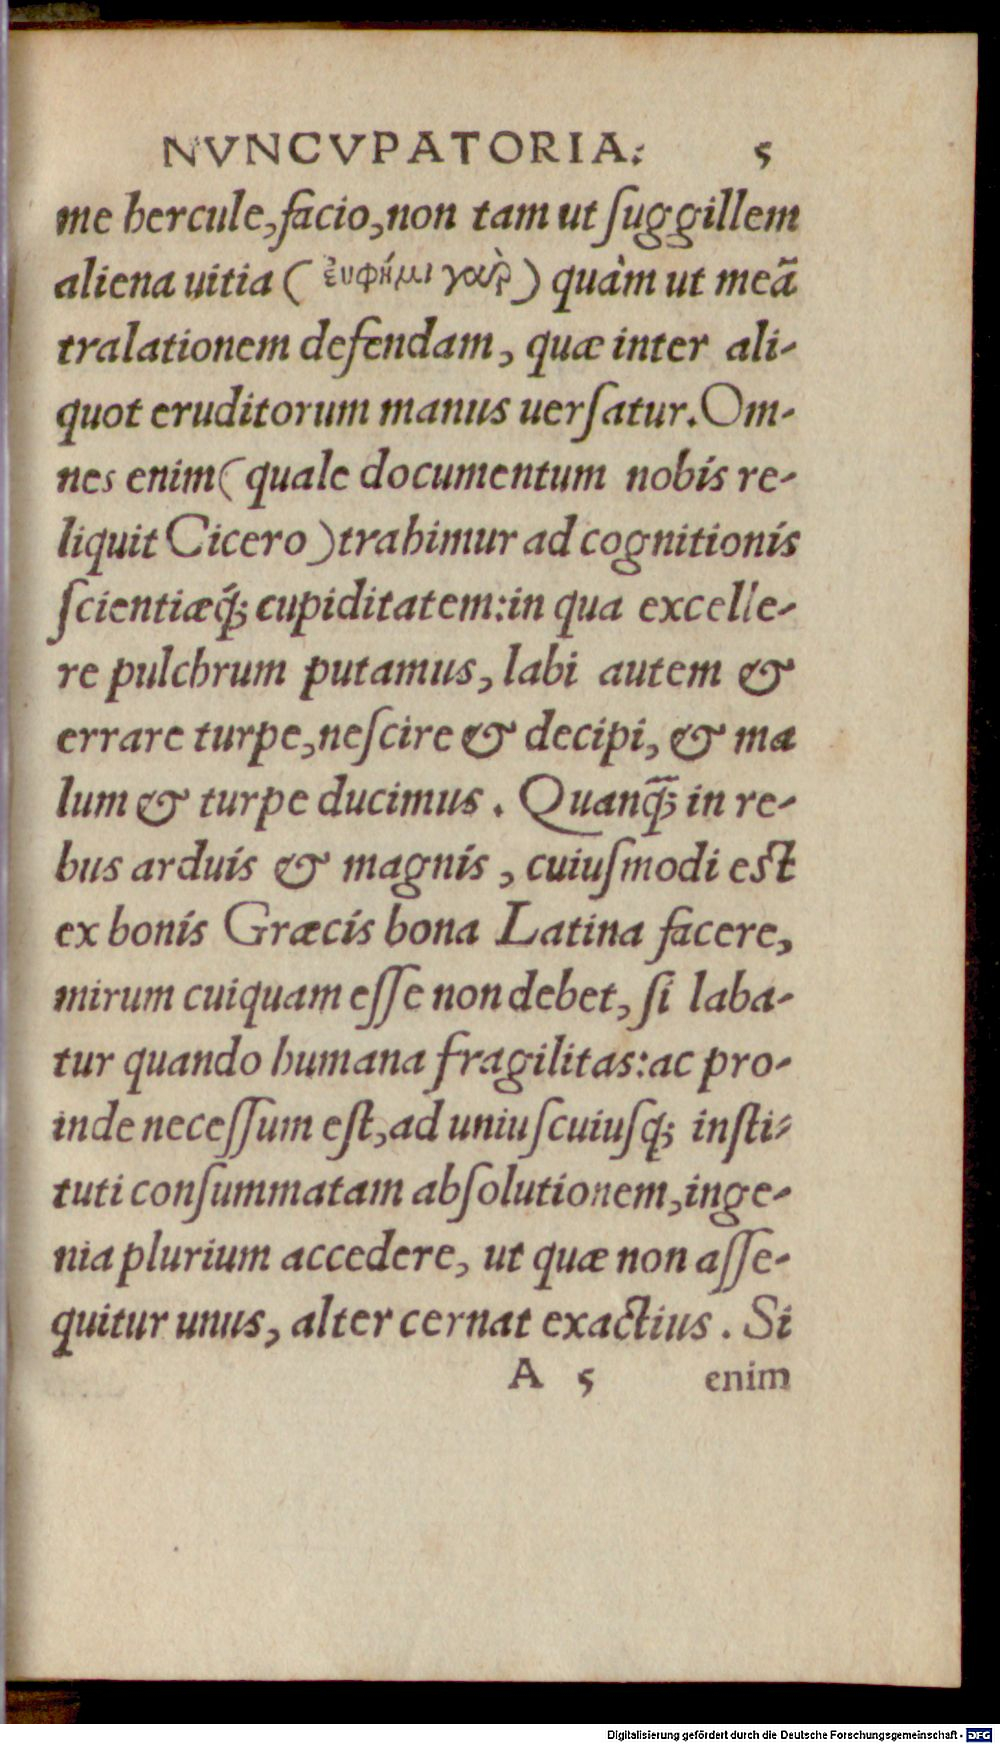 NVNCVPATORIA. 5
me hercule, facio, non tam ut ſuggillem
aliena uitia ( ἐυφήμει γαὸρ ) quàm ut meã
tralationem defendam, quæ inter ali-
quot eruditorum manus uerſatur. Om-
nes enim ( quale documentum nobis re-
liquit Cicero ) trahimur ad cognitionis
ſcientiæq́; cupiditatem: in qua excelle-
re pulchrum putamus, labi autem &
errare turpe, neſcire & decipi, & ma
lum & turpe ducimus. Quanq̃; in re-
bus arduis & magnis, cuiuſmodi est
ex bonis Græcis bona Latina facere,
mirum cuiquam eſſe non debet, ſi laba-
tur quando humana fragilitas: ac pro-
inde neceſſum eſt, ad uniuſcuiuſq; inſti-
tuti conſummatam abſolutionem, inge-
nia plurium accedere, ut quæ non aſſe-
quitur unus, alter cernat exactius. Si
A 5 enim
Digitalisierung gefördert durch die Deutsche Forschungsgemeinschaft - DFG